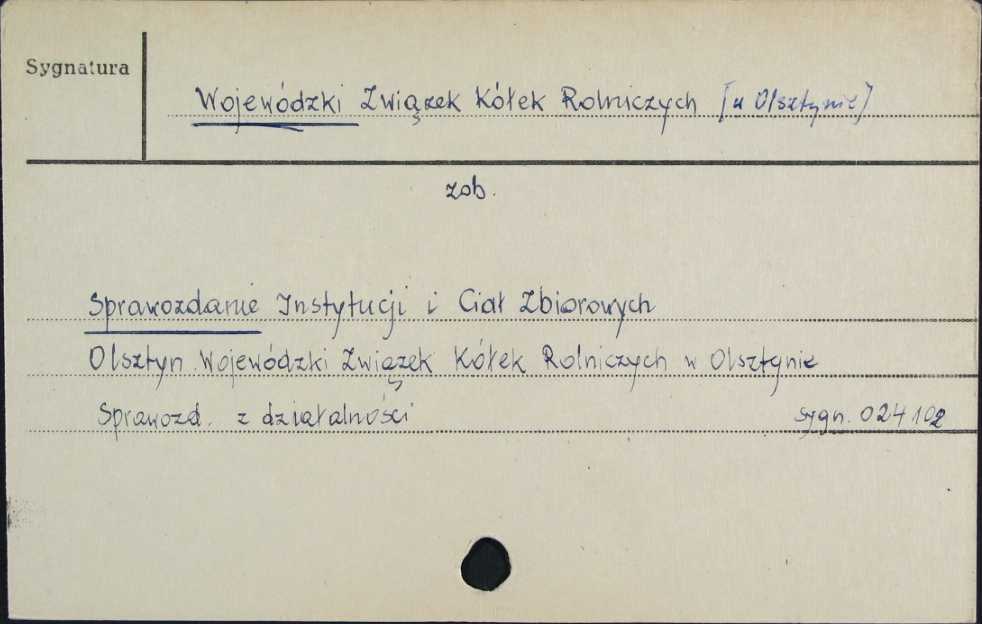 Sygnatura
Wojewódzki Związek Kółek Rolniczych [w Olsztynie]
zob.
Sprawozdanie Instytucji i Ciał Zbiorowych
Olsztyn. Wojewódzki Związek Kółek Rolniczych w Olsztynie
Sprawozd. z działalności sygn. 024102